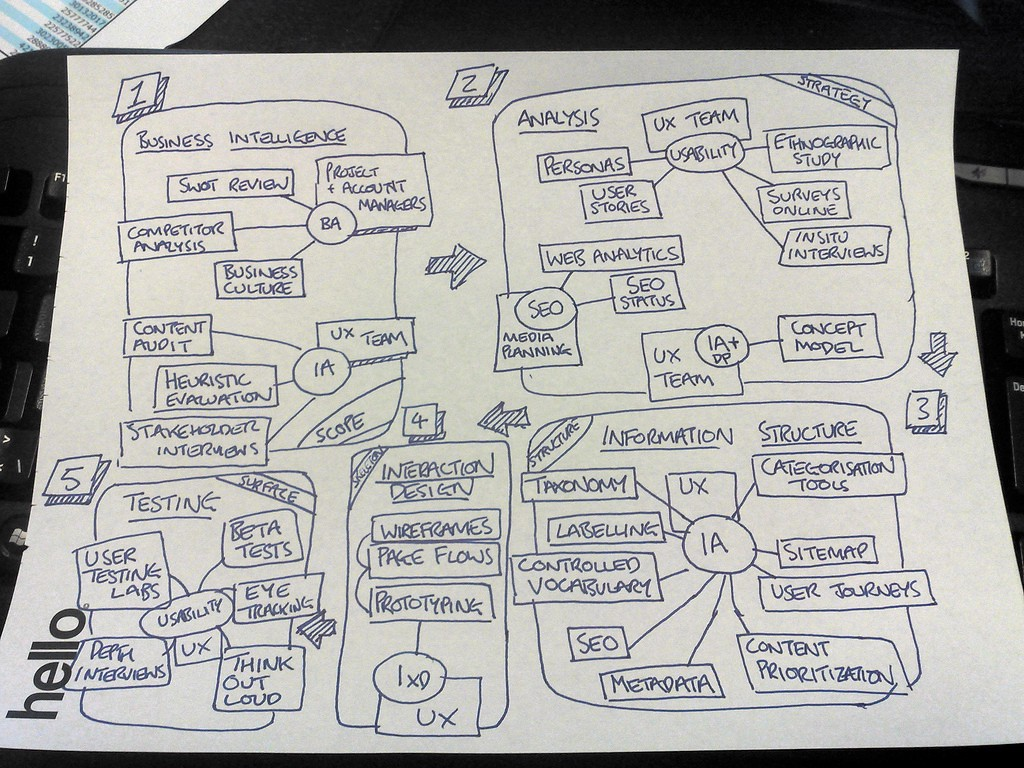 1
BUSINESS INTELLIGENCE
SWOT REVIEW
PROJECT
+ ACCOUNT
MANAGERS
BA
COMPETITOR
ANALYSIS
BUSINESS
CULTURE
CONTENT
AUDIT
UX TEAM
IA
HEURISTIC
EVALUATION
STAKEHOLDER
INTERVIEWS
SCOPE
2
STRATEGY
ANALYSIS
UX TEAM
USABILITY
PERSONAS
ETHNOGRAPHIC
STUDY
USER
STORIES
SURVEYS
ONLINE
INSITU
INTERVIEWS
WEB ANALYTICS
SEO
SEO
STATUS
MEDIA
PLANNING
UX
TEAM
IA +
DP
CONCEPT
MODEL
3
STRUCTURE
INFORMATION STRUCTURE
TAXONOMY
UX
CATEGORISATION
TOOLS
LABELLING
IA
SITEMAP
CONTROLLED
VOCABULARY
USER JOURNEYS
SEO
METADATA
CONTENT
PRIORITIZATION
4
INTERACTION
DESIGN
WIREFRAMES
PAGE FLOWS
PROTOTYPING
IXD
UX
5
SURFACE
TESTING
BETA
TESTS
USER
TESTING
LABS
USABILITY
EYE
TRACKING
UX
DEPTH
INTERVIEWS
THINK
OUT
LOUD
hello
F1
!
1